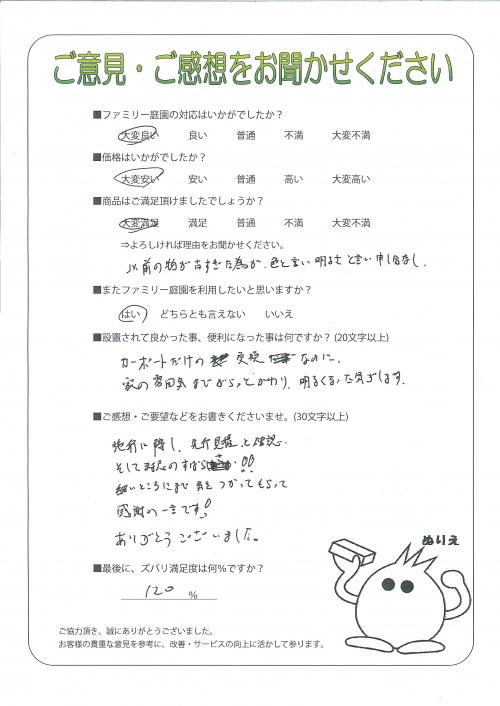 ご意見・ご感想をお聞かせください
■ファミリー庭園の対応はいかがでしたか？
大変良い 良い 普通 不満 大変不満
■価格はいかがでしたか？
大変安い 安い 普通 高い 大変高い
■商品はご満足頂けましたでしょうか？
大変満足 満足 普通 不満 大変不満
⇒よろしければ理由をお聞かせください。
以前の物が古すぎた為か、色と言い明るさと言い申し分なし。
■またファミリー庭園を利用したいと思いますか？
はい どちらとも言えない いいえ
■設置されて良かった事、便利になった事は何ですか？(20文字以上)
カーポートだけの 交換 なのに、
家の雰囲気までがらっとかわり、明るくなった気がします。
■ご感想・ご要望などをお書きくださいませ。(30文字以上)
施行に際し、先行見積と確認。
そして のすばら !!
細いところにまで気をつかってもらって
感謝の一言です!
ありがとうございました。
ぬりえ
■最後に、ズバリ満足度は何％ですか？
120 ％
ご協力頂き、誠にありがとうございました。
お客様の貴重な意見を参考に、改善・サービスの向上に活かして参ります。